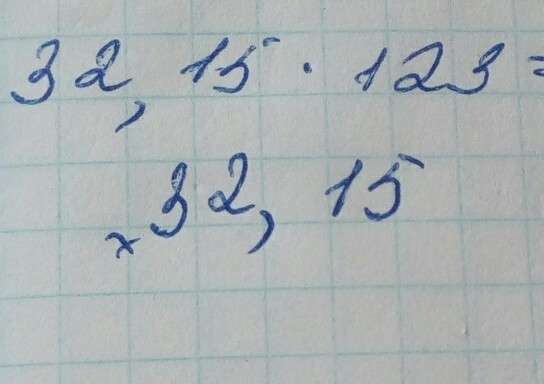 32,15 · 123 =
× 32,15